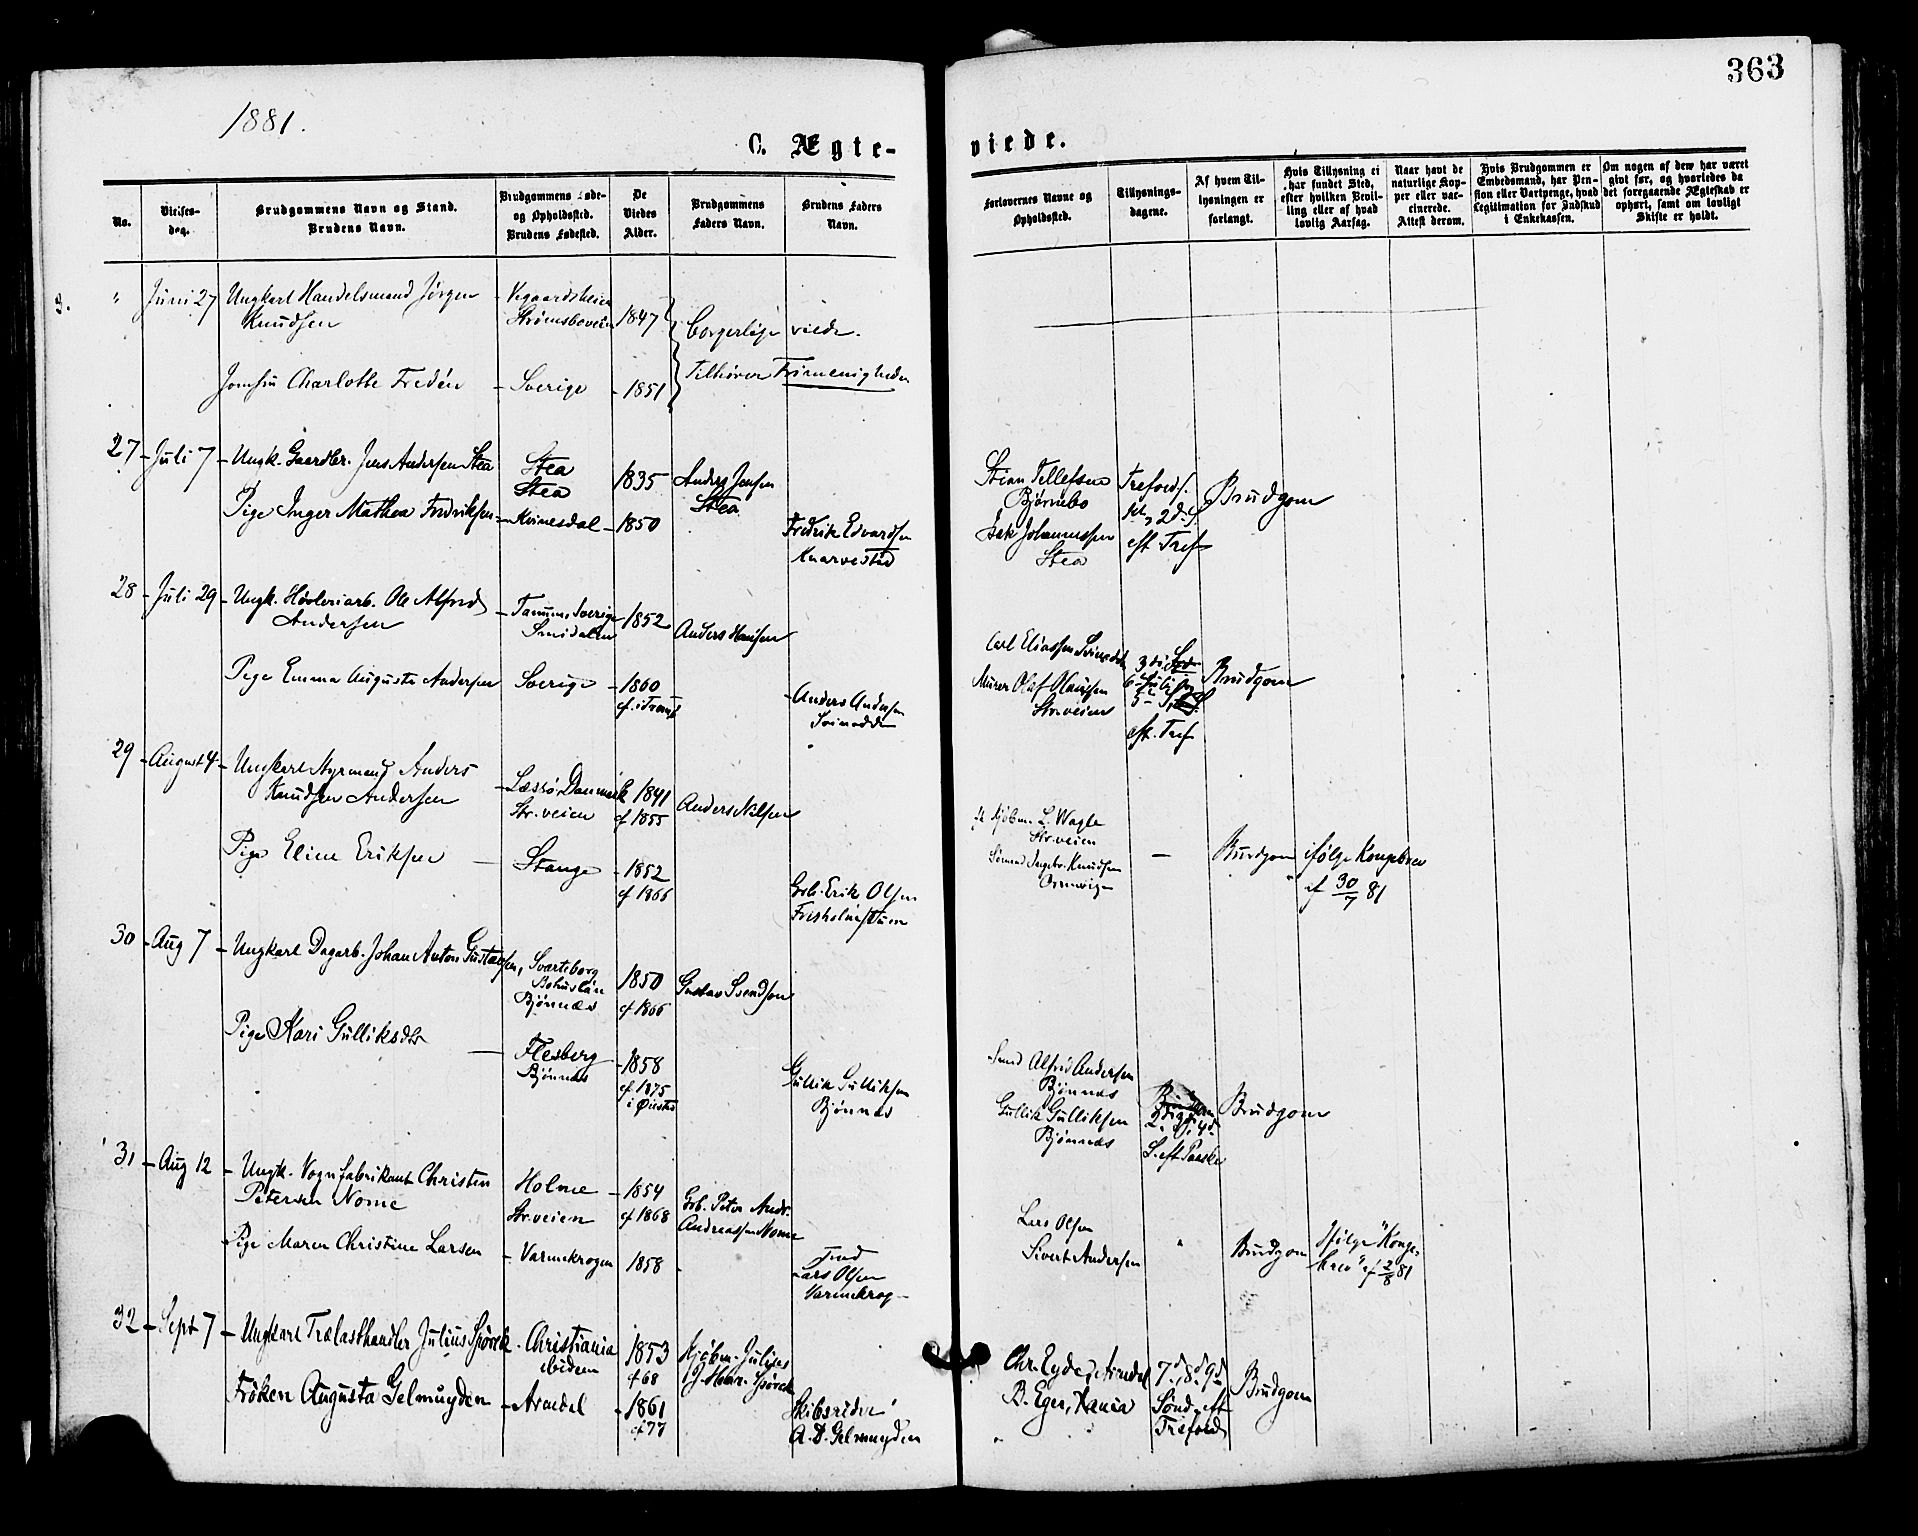 363
1881.
C. Ægte-
viede.
No.
Vielses-
dag.
Brudgommens Navn og Stand.
Brudens Navn.
Brudgommens Føde-
og Opholdssted.
Brudens Fødested.
De
Viedes
Alder.
Brudgommens
Faders Navn.
Brudens Faders
Navn.
Forlovernes Navne og
Opholdssted.
Tillysnings-
dagene.
Af hvem Til-
lysningen er
forlangt.
Hvis Tillysning ei
har fundet Sted,
efter hvilken Bevil-
ling eller af hvad
lovlig Aarsag.
Naar havt de
naturlige Kop-
per eller vac-
cinerede.
Attest derom.
Hvis Brudgommen er
Embedsmand, har Pen-
sion eller Vartpenge, hvad
Legitimation for Indskud
i Enkekassen.
Om nogen af dem har været
givt før, og hvorledes da
det foregaaende Ægteskab er
ophørt, samt om lovligt
Skifte er holdt.
" Juni 27 Ungkarl Handelsmand Jørgen
Knudsen
Vegaardsheien
Strømsboveien
1847
Borgerlige viede.
Jomfru Charlotte Fredén - Sverige - 1851
Tilhører Frimenigheden
27 - Juli 7 - Ungk. Gaardbr. Jens Andersen Stea
Stea
Stea
1835
Anders Jensen
Stea
Pige Inger Mathea Fredriksen - Kvinesdal - 1850
Fredrik Edvardsen
Knarvestad
Stian Tellefsen
Bjørnebo
Isak Johannessen
Stea
Trefold.
eft. Tref
Brudgom
28 - Juli 29 - Ungk. Høvleriarb. Ole Alfred
Andersen
Tanum, Sverige
Smidalen
1852
Anders Hansen
Pige Emma Augusta Andersen Sverige - 1860
cf. i Tromø
Anders Andersen
Svinodden
Carl Eliassen Svinodden
Murer Olaf Hansen
Str.veien
eft. Tref
Brudgom
29 - August 4 - Ungkarl Styrmand Anders
Knudsen Andersen
Læssø Danmark
Str.veien
1841
cf 1855
Anders Nilsen
Pige Eline Eriksen - Stange - 1852
cf 1866
Grb. Erik Olsen
Kjøbm. L. Wagle
Str.veien
Sømand Ingebr. Knudsen
—
Brudgom
ifølge Kongebrev
af 30/7 81
30 - Aug 7 - Ungkarl Dagarb. Johan Anton Gustavsen,
Svarteborg
Bohuslän
Bjønnæs
1850
cf 1866
Gustav Svendsen
Pige Kari Gulliksdtr
— Flesberg
Bjønnæs
1858
cf 1875
i Øiestad
Gullik Gulliksen
Bjønnæs
Alfred Andersen
Bjønnæs
Gullik Gulliksen
Bjønnæs
S. eft Paaske
Brudgom
31 - Aug 12 - Ungk. Vognfabrikant Christen
Petersen Nome
Holme
Str.veien
1854
cf 1868
Grb. Peter Andr.
Andreassen Nome
Pige Maren Christine Larsen - Varmekrogen 1858
Lars Olsen
Varmekrog
Lars Olsen
Sivert Andersen
"
Brudgom
Ifølge "Konge-
brev" af 2/8 81
32 - Sept 7 - Ungkarl Trælasthandler Julius Spørck - Christiania
ibidem
1853
cf 68
Kjøbm. Julius
J. Henr. Spørck
Frøken Augusta Gelmuyden - Arendal - 1861
cf 77
Skibsreder
A. D. Gelmuyden
Chr. Eyde, Arendal
B. Eger, Xania
7d, 8d, 9d
Sønd. eft
Trefold
Brudgom